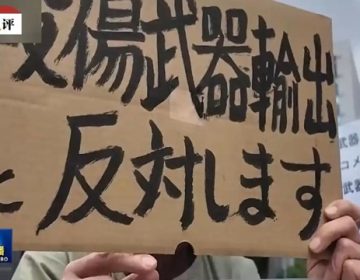 評
殺傷武器輸出
に反対します